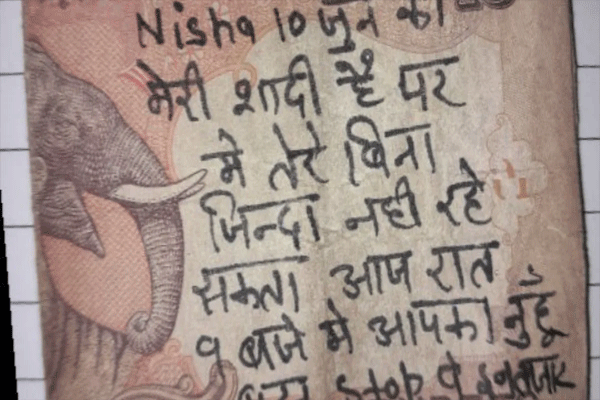 Nisha 10 जुन को
मेरी शादी है पर
मे तेरे बिना
जिन्दा नही रहे
सकता आज रात
9 बजे मे आपका
बस stop पे इनतजार